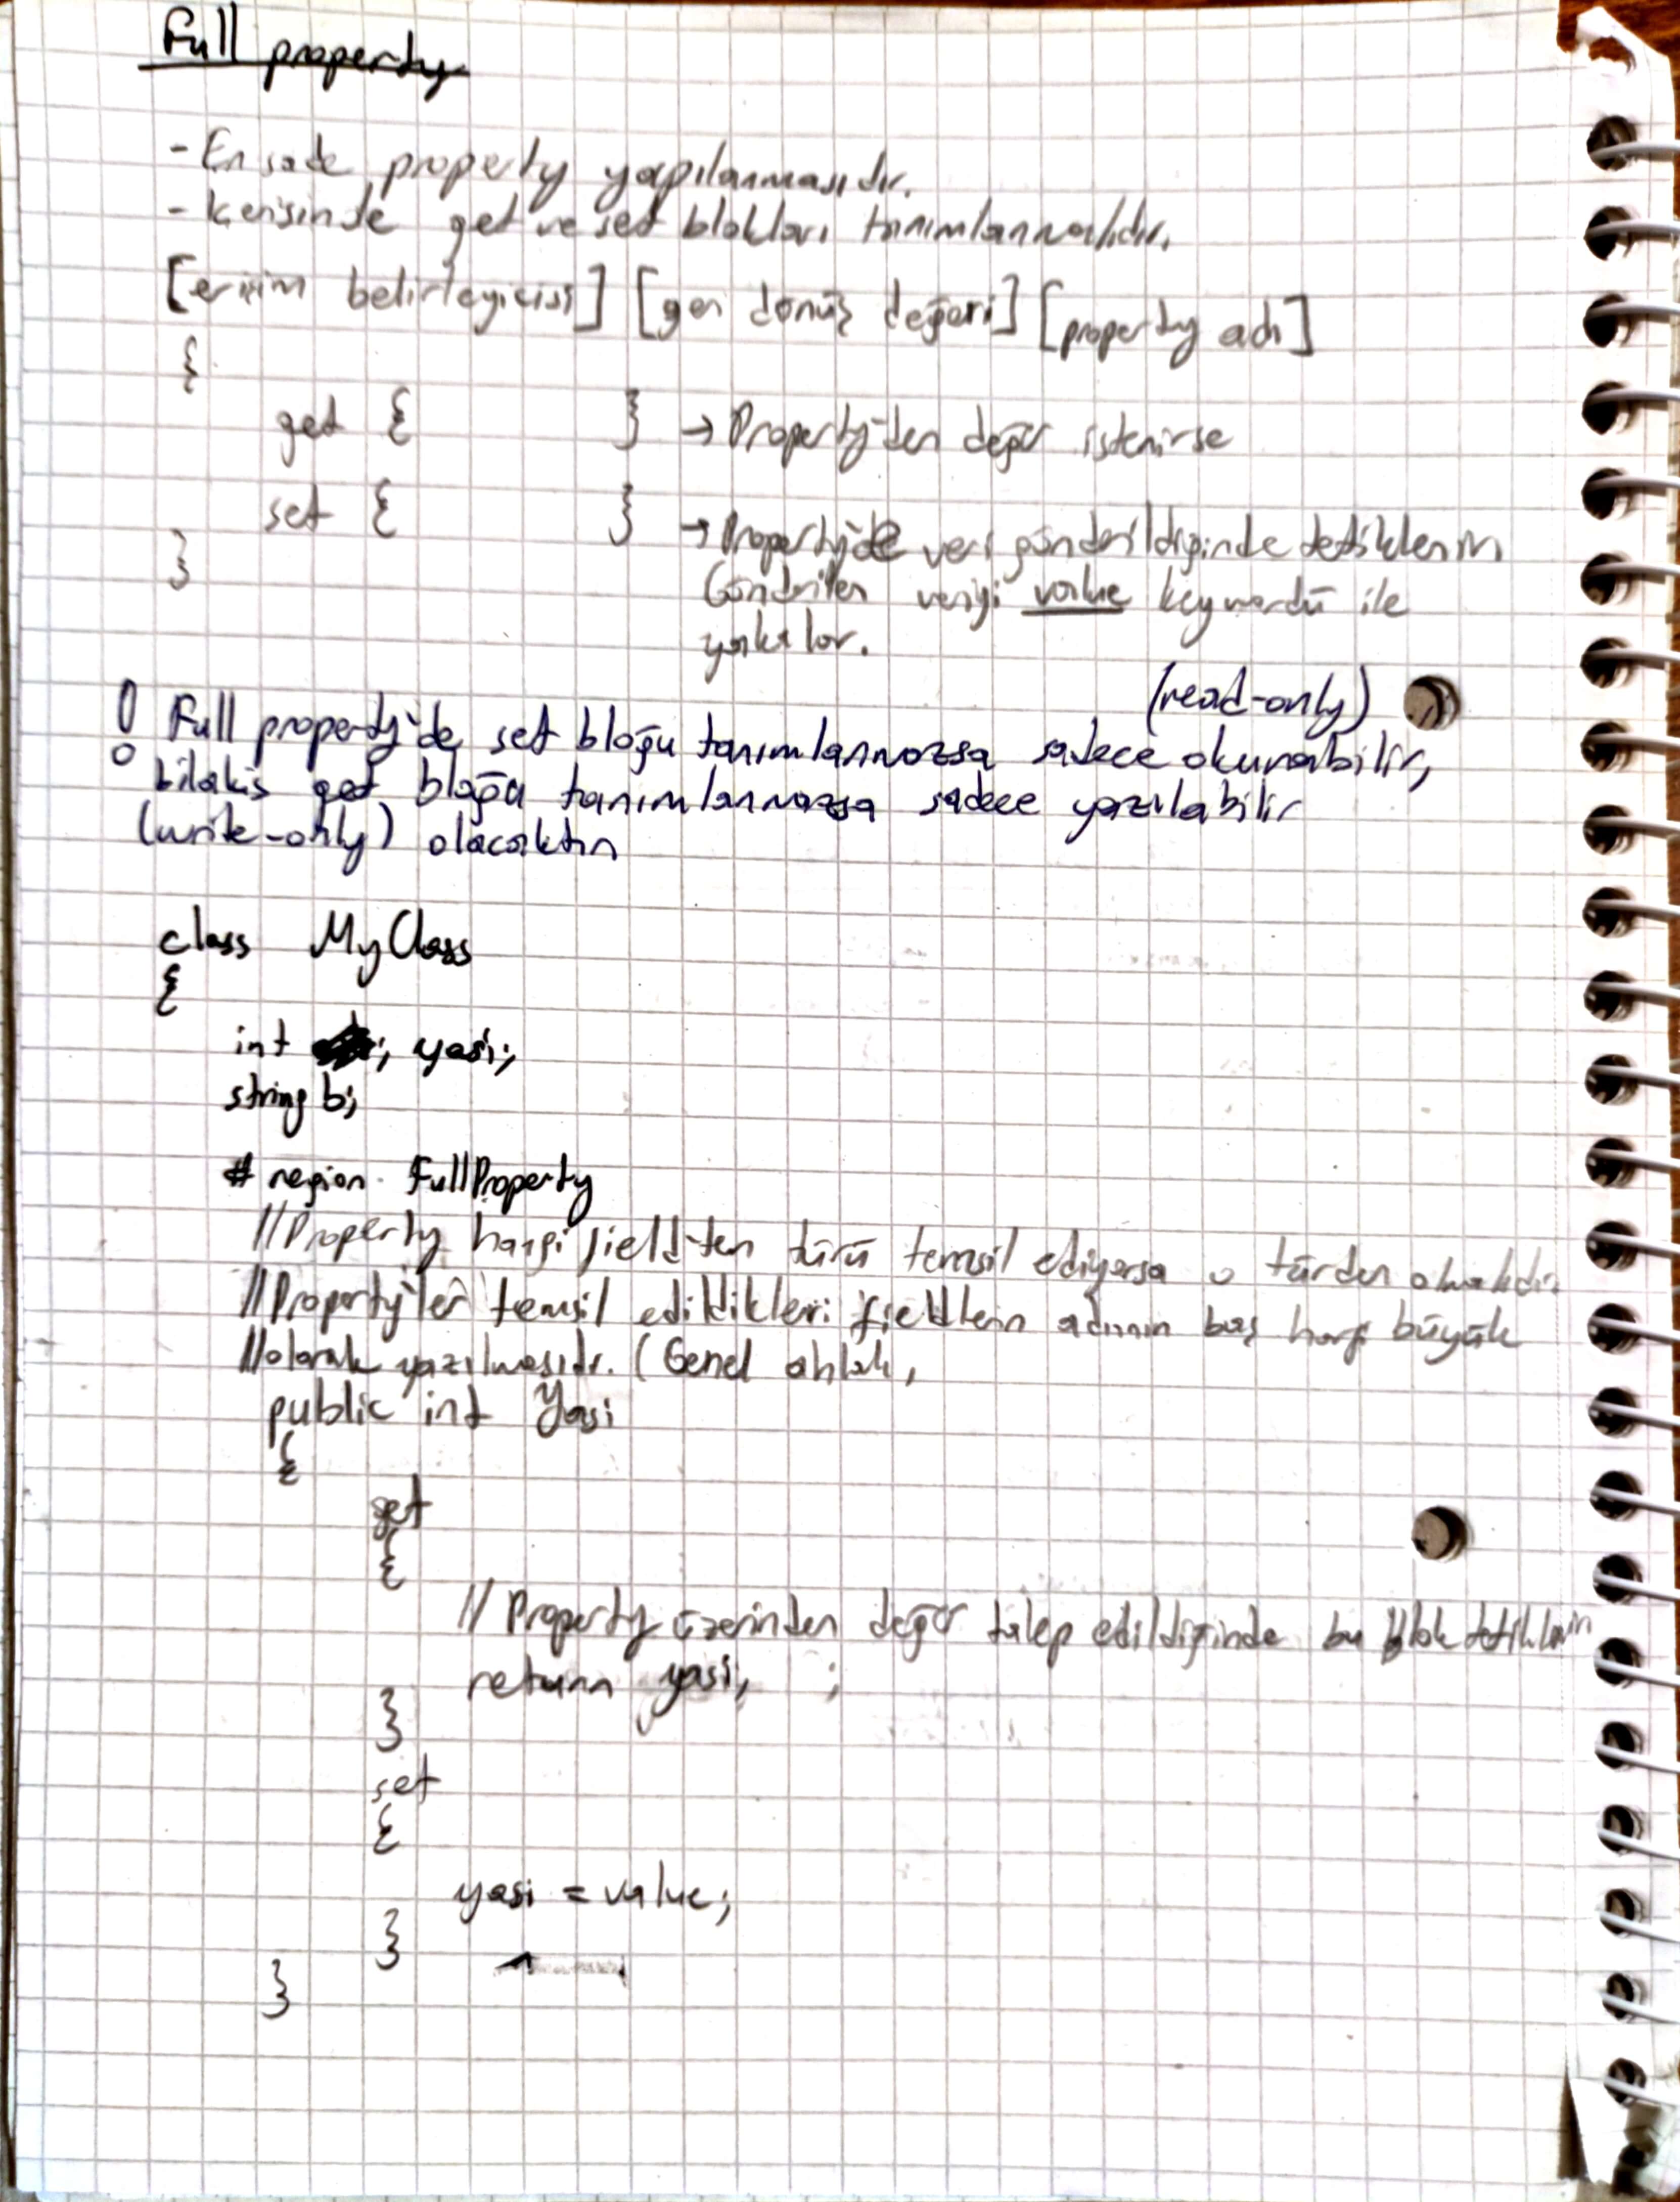 Full property
- En sade property yapılanmasıdır.
- İçerisinde get ve set blokları tanımlanmalıdır.
[erişim belirleyicisi] [geri dönüş değeri] [property adı]
{
get { } → Property'den değer istenirse
set { } → Property'de veri gönderildiğinde tetiklenir.
Gönderilen veriyi value keywordü ile
yakalar.
(read-only)
! Full property'de set bloğu tanımlanmazsa sadece okunabilir,
bilakis get bloğu tanımlanmazsa sadece yazılabilir
(write-only) olacaktır
}
class MyClass
{
int ; yasi;
string b;
# region FullProperty
//Property hangi field'ten türü temsil ediyorsa o türden olmalıdır.
//Property'ler temsil edildikleri fieldlerin adının baş harfi büyük
//olarak yazılmasıdır. (Genel ahlak,
public int Yasi
{
get
{
// Property üzerinden değer talep edildiğinde bu blok tetiklenir
return yasi; ;
}
set
{
yasi = value;
}
}